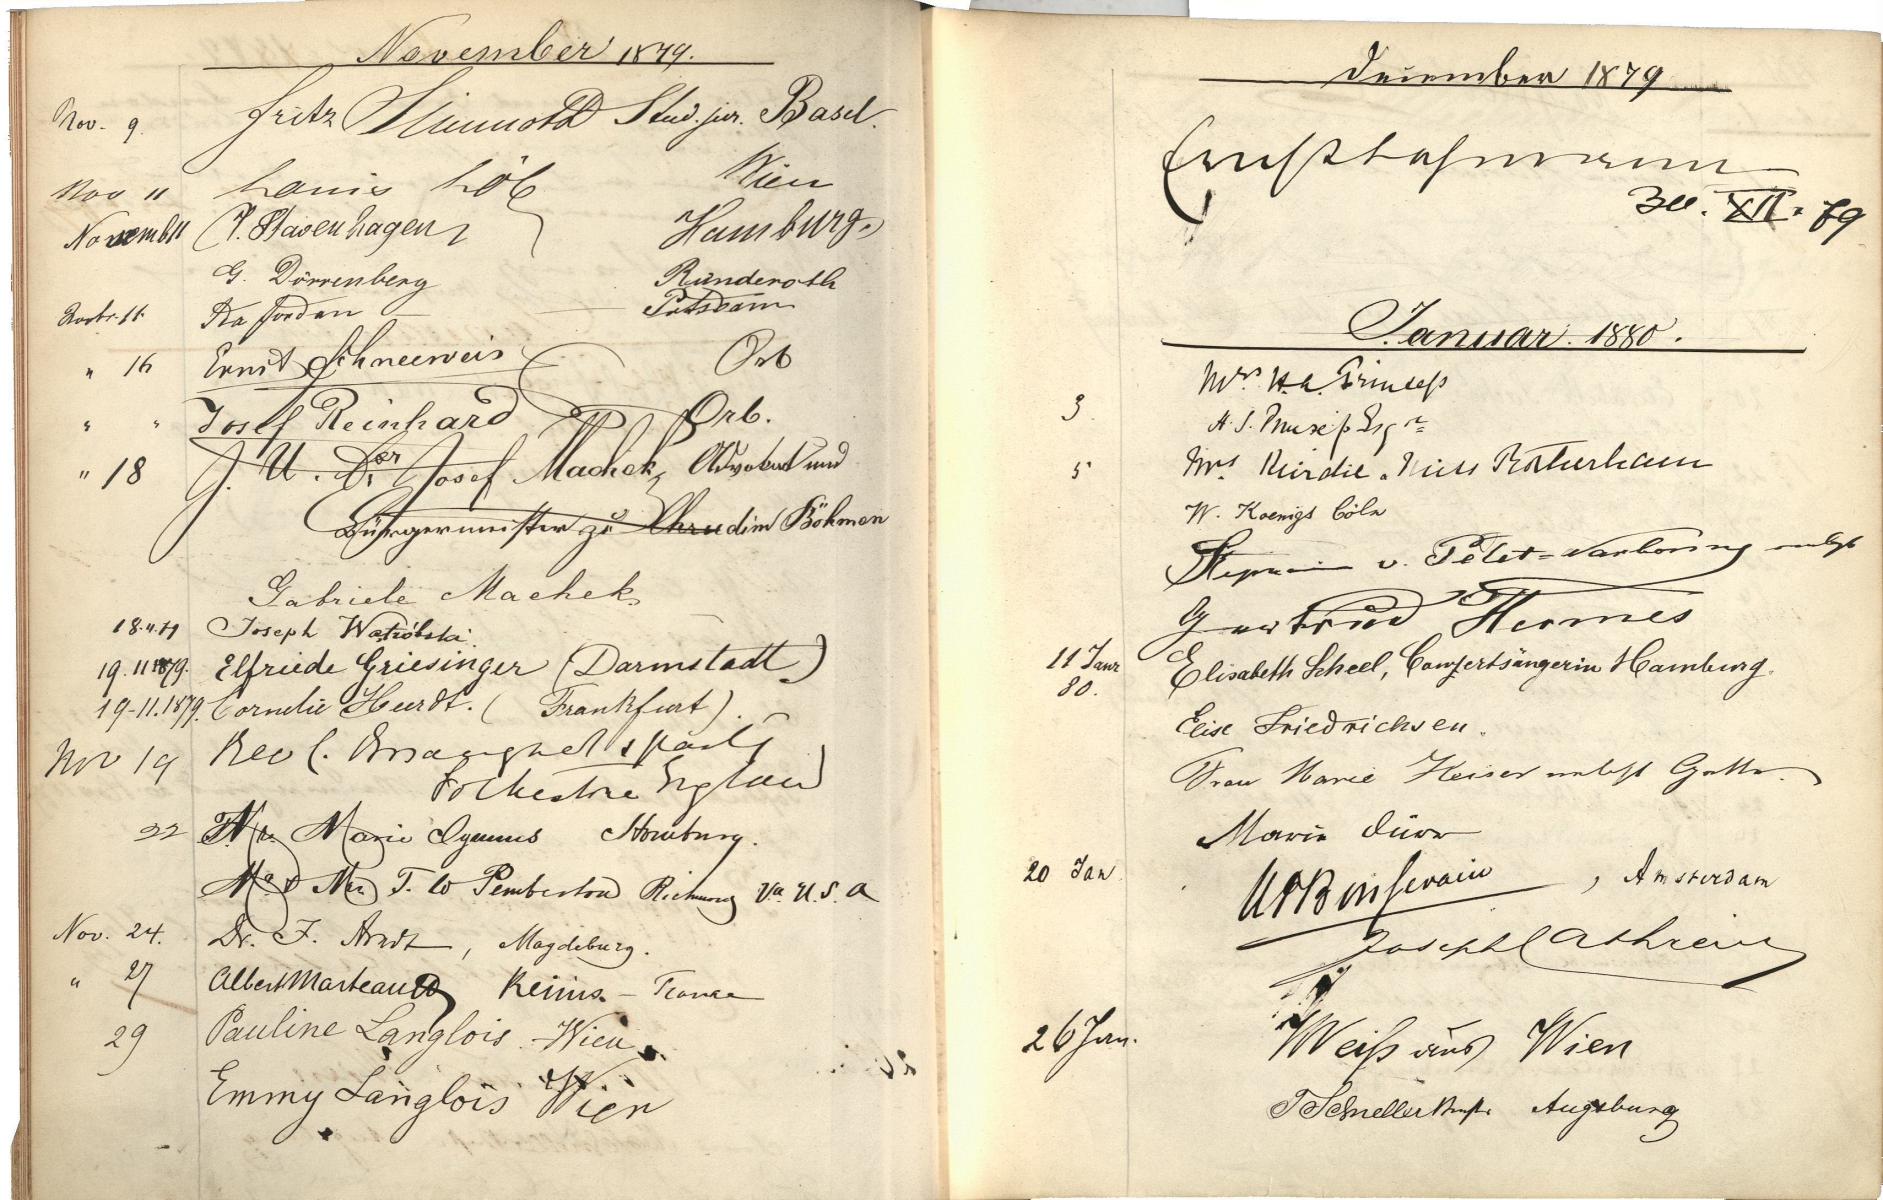 November 1879.
Nov. 9. Fritz Stud. jur. Basel.
Nov 11 Wien
Novemb 11 Stavenhagen, Hamburg.
G. Dörrenberg Ründeroth
Novbr. 11. Jordan — Potsdam
" 16 Ernst Schneeweis Orb
" " Josef Reinhard Orb.
" 18 J. U. Dr Josef Machek, Advokat und
Bürgermeister zu Chrudim Böhmen
Gabriele Machek
Joseph Watróbski.
19.11.1879. Elfriede Griesinger (Darmstadt)
19-11.1879. Cornelie Heerdt. (Frankfurt).
Nov 19 Rev C.
Folkestone England
22 Marie Homburg.
Mr & Mrs T. W Pemberton Richmond Va. U.S.A
Nov. 24. Dr. F. Arndt, Magdeburg.
" 27 Albert Marteau Reims. — France
29 Pauline Langlois. Wien.
Emmy Langlois Wien
Dezember 1879
Ernst Hofmann
30. XII. 79
Januar. 1880.
Mrs. Prinsep
3. Prinsep Esqre
5 Mrs
W. Koenigs Cöln
v. Pelet-Narbonne nebst
Gertrud Hermes
11 Janr 80. Elisabeth Scheel, Conzertsängerin Hamburg.
Elise Friedrichsen.
Frau Marie Keiser nebst Gatte.
Maria Dürr
20 Jan. , Amsterdam
Joseph Cathrein
26 Jan. Weiß aus Wien
Schneller Augsburg